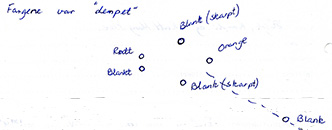 Fargene var "dempet"
Blank (skarpt)
Rødt
Orange
Blankt
Blank (skarpt)
Blank